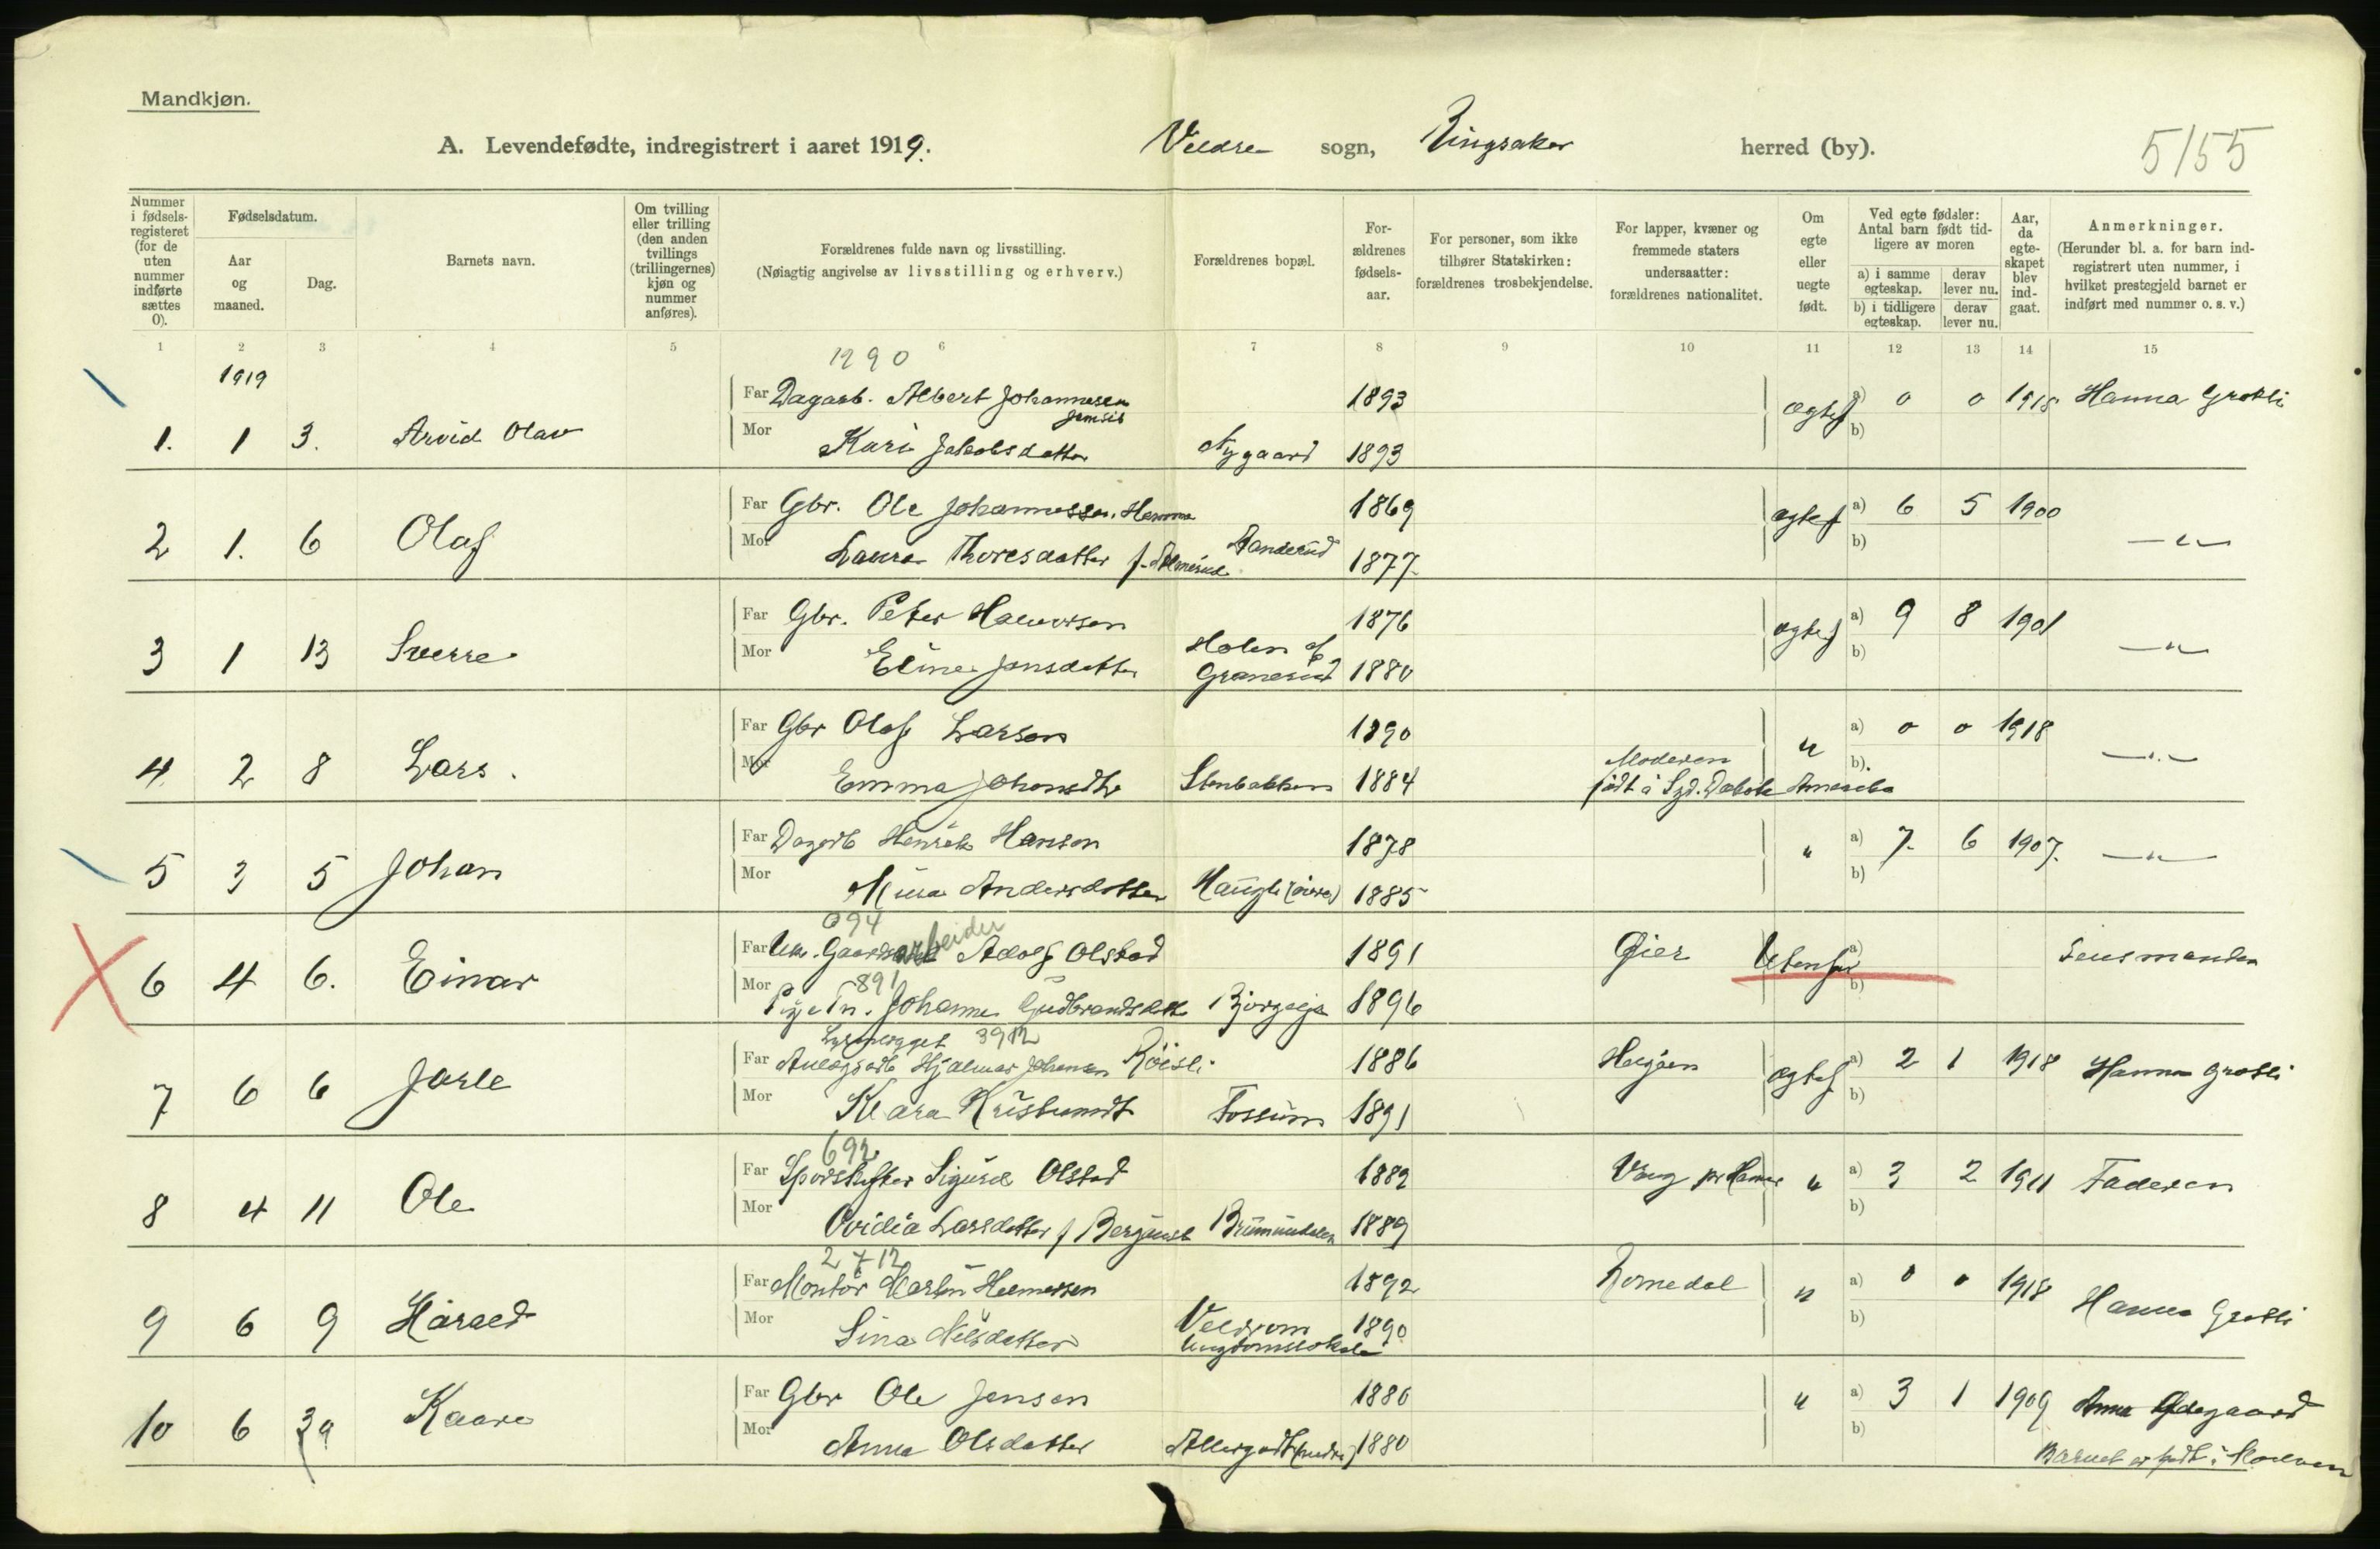 Mandkjøn.
A. Levendefødte, indregistrert i aaret 1919. Veldre sogn, Ringsaker herred (by). 5/55
Nummer i fødselsregisteret (for de uten nummer indførte sættes 0).
Fødselsdatum.
Aar og maaned.
Dag.
Barnets navn.
Om tvilling eller trilling (den anden tvillings (trillingernes) kjøn og nummer anføres).
Forældrenes fulde navn og livsstilling.
(Nøiagtig angivelse av livsstilling og erhverv.)
Forældrenes bopæl.
Forældrenes fødselsaar.
For personer, som ikke tilhører Statskirken: forældrenes trosbekjendelse.
For lapper, kvæner og fremmede staters undersaatter: forældrenes nationalitet.
Om egte eller uegte født.
Ved egte fødsler: Antal barn født tidligere av moren
a) i samme egteskap. derav lever nu.
b) i tidligere egteskap. derav lever nu.
Aar, da egteskapet blev indgaat.
Anmerkninger.
(Herunder bl. a. for barn indregistrert uten nummer, i hvilket prestegjeld barnet er indført med nummer o. s. v.)
1 2 3 4 5 6 7 8 9 10 11 12 13 14 15
1919 1290
Far Dagarb. Albert Johannesen 1893 ægtef a) 0 0 1918 Hanna Grøtli
1. 1 3. Arvid Olav Mor Kari Jakobsdatter Nygaard 1893 b)
Far Gbr. Ole Johannessen 1869 ægtef a) 6 5 1900
2 1. 6 Olaf Mor Laura Thoresdatter 1877 b) — " —
Far Gbr. Peter Halvorsen 1876 ægtef a) 9 8 1901
3 1 13 Sverre Mor Eline Jonsdatter Holen af Granerud 1880 b) — " —
Far Gbr Olaf Larsen 1890 " a) 0 0 1918
4 2 8 Lars. Mor Emma Johansdtr Stenbakken 1884 Moderen født i Syd. Dakota Amerika b) — " —
Far Dagarb Henrik Hansen 1878 " a) 7. 6 1907. — " —
5 3 5 Johan Mor Mina Andersdatter Haugli (øvre) 1885 b)
094
Far Um. Gaardsarbeider Adolf Olstad 1891 Øier Utenfor a) Lensmanden
6 4 6. Einar 891
Mor Pige Johanne Gudbrandsdatt 1896 b)
3912
Far Anlægsarb Hjalmar Johansen Røisli 1886 Helgøen ægtef a) 2 1 1918 Hanna Grøtli
7 6 6 Jarle Mor Klara Kristiansdt Fossum 1891 b)
692
Far Sporskifter Sigurd Olstad 1882 Vang pr Hamar " a) 3 2 1911 Faderen
8 4 11 Ole Mor Ovidia Larsdatter f Brumunddalen 1889 b)
2712
Far Montör Martin 1892 Romedal " a) 0 0 1918 Hanna Grøtli
9 6 9 Harald Mor Lina Nilsdatter Veldrom Ungdomslokale 1890 b)
Far Gbr Ole Jensen 1880 " a) 3 1 1909 Anna Ødegaard
10 6 30 Kaare Mor Anna Olsdatter 1880 b) Barnet er født i Moelven